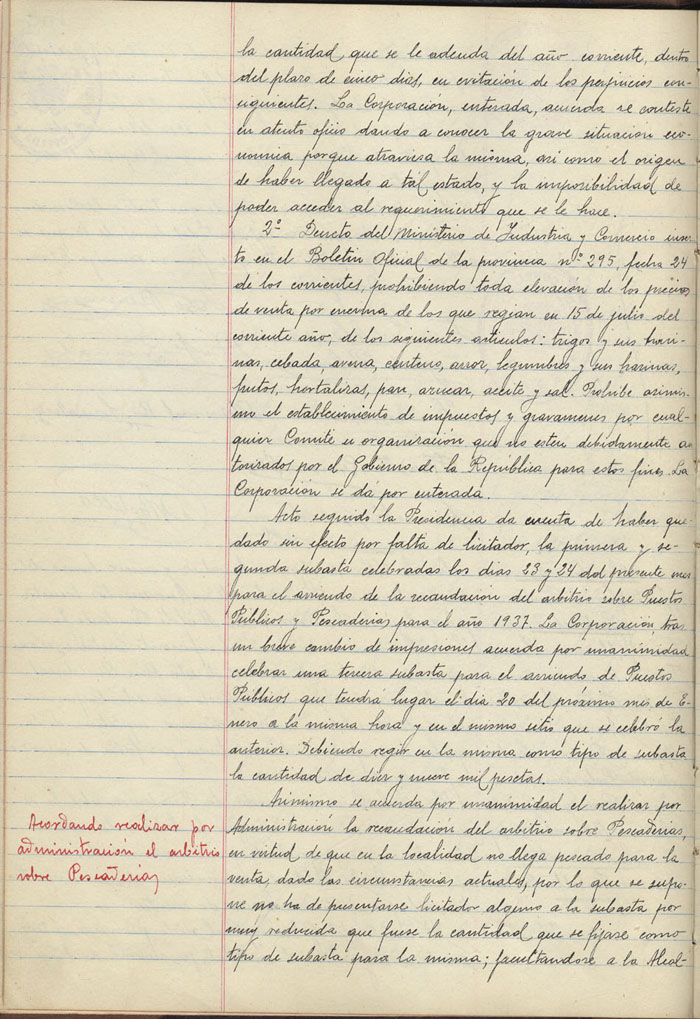 la cantidad que se le adeuda del año corriente, dentro
del plazo de cinco dias, en evitación de los perjuicios con-
siguientes. La Corporación, enterada, acuerda se conteste
en atento oficio dando a conocer la grave situación eco-
nomica porque atraviesa la misma, asi como el origen
de haber llegado a tal estado, y la imposibilidad de
poder acceder al requerimiento que se le hace.
2º Decreto del Ministerio de Industria y Comercio inser-
to en el Boletin Oficial de la provincia nº 295, fecha 24
de los corrientes, prohibiendo toda elevación de los precios
de venta por encima de los que regian en 15 de julio del
corriente año, de los siguientes articulos: trigos y sus hari-
nas, cebada, avena, centeno, arroz, legumbres y sus harinas,
frutos, hortalizas, pan, azucar, aceite y sal. Prohibe asimis-
mo el establecimiento de impuestos y gravamenes por cual-
quier Comité u organización que no esten debidamente au-
torizados por el Gobierno de la República para estos fines. La
Corporación se dá por enterada.
Acto seguido la Presidencia da cuenta de haber que-
dado sin efecto por falta de licitador, la primera y se-
gunda subasta celebradas los dias 23 y 24 del presente mes
para el arriendo de la recaudación del arbitrio sobre Puestos
Públicos y Pescaderias para el año 1937. La Corporación, tras
un breve cambio de impresiones acuerda por unanimidad
celebrar una tercera subasta para el arriendo de Puestos
Públicos que tendrá lugar el dia 20 del próximo mes de E-
nero a la misma hora y en el mismo sitio que se celebró la
anterior. Debiendo regir en la misma como tipo de subasta
la cantidad de diez y nueve mil pesetas.
Acordando realizar por
administración el arbitrio
sobre Pescaderias
Asimismo se acuerda por unanimidad el realizar por
Administración la recaudación del arbitrio sobre Pescaderias,
en virtud de que en la localidad no llega pescado para la
venta, dado las circunstancias actuales, por lo que se supo-
ne no ha de presentarse licitador alguno a la subasta por
muy reducida que fuese la cantidad que se fijase como
tipo de subasta para la misma; facultandose a la Alcal-